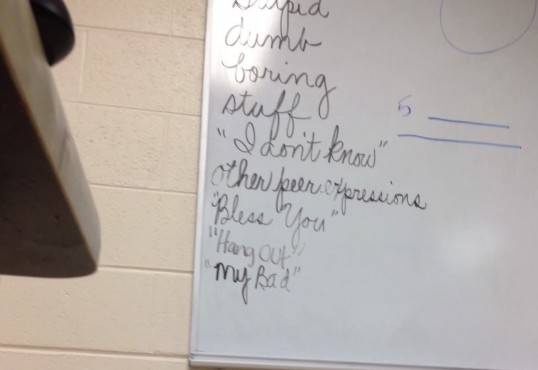 Stupid
dumb
boring
stuff
5
"I don't know"
other peer expressions
"Bless You"
"Hang Out"
"My Bad"